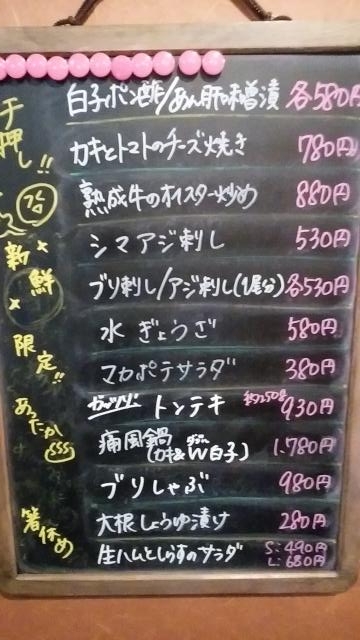 チ押し!!
白子ポン酢/あん肝味噌漬 各580円
カキとトマトのチーズ焼き 780円
熟成牛のオイスター炒め 880円
新鮮
シマアジ刺し 530円
ブリ刺し/アジ刺し(1尾分) 各530円
限定!!
水ぎょうざ 580円
マカポテサラダ 380円
あったか
ガッツリ! トンテキ 約250g 930円
痛風鍋(カキ&W白子) 1,780円
ブリしゃぶ 980円
箸休め
大根しょうゆ漬け 280円
生ハムとしらすのサラダ S:490円 L:680円